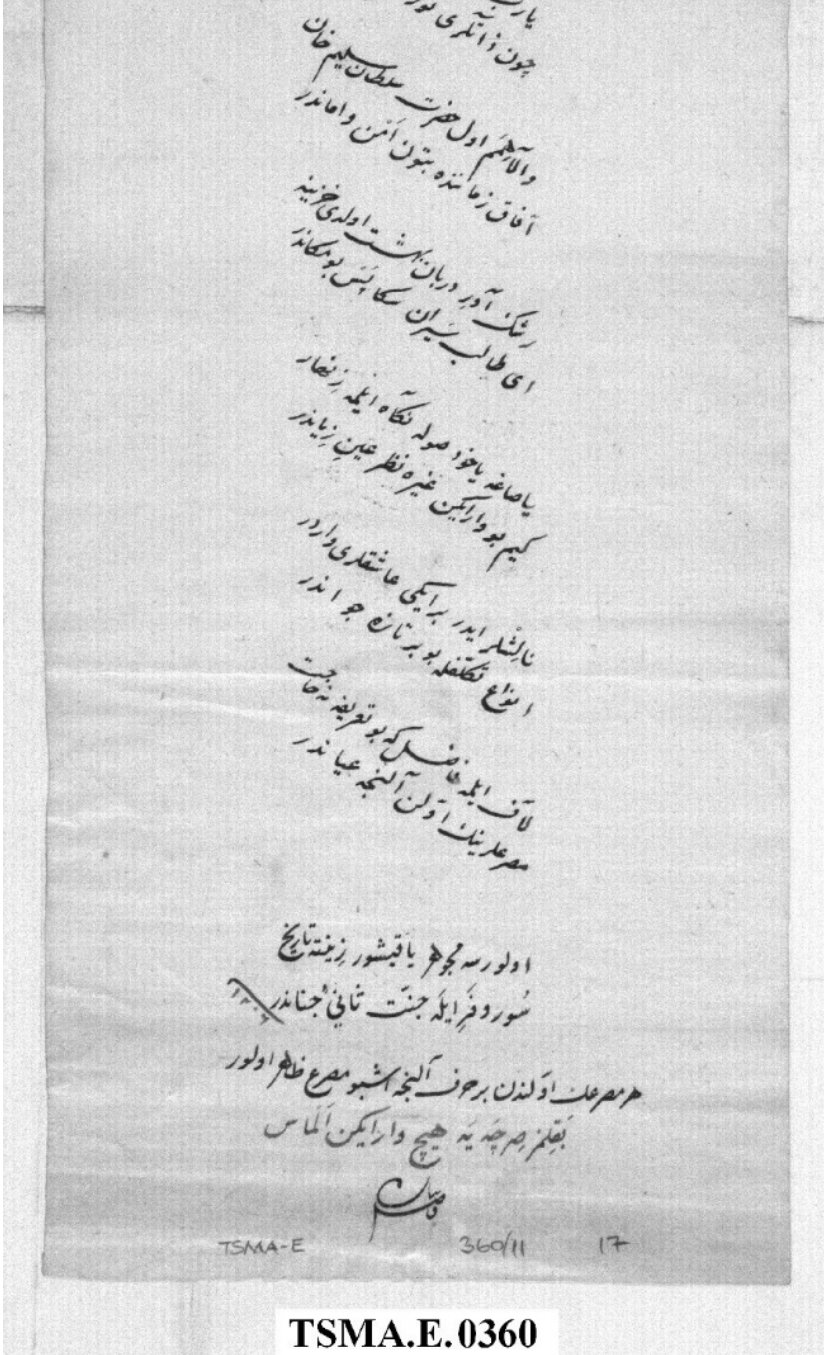 یارب
چون ذاتکری
والا همم اول حضرت سلطان سلیم خان
آفاق زماننده بتون امن و اماندر
رشک آور دربان بهشت اولدی خزینه
ای طالب سیران سکا بس بو مکاندر
یا صاغه یاخود صوله نکاه ایلمه زنهار
کیم بو وارایکن غیره نظر عین زیاندر
نالشلر ایدر بر ایکی عاشقلری واردر
انواع تکلفله بو بر تازه جواندر
لاف ایلمه فاضل که بو تعریفه نه حاجت
مصرعلرینک اولن آلنجه عیاندر
اولورسه مجوهر یاقیشور زینته تاریخ
سور و فر ایله جنت ثانی جناندر
هر مصرعک اولندن بر حرف آلنجه اشبو مصرع ظاهر اولور
بقلمز صرچه یه هیچ وارایکن الماس
فاضل
TSMA-E 360/11 17
TSMA.E.0360